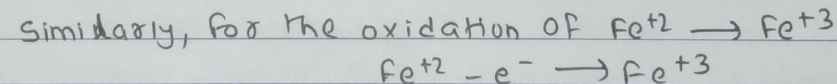 Similarly, for the oxidation of Fe⁺² → Fe⁺³
Fe⁺² - e⁻ → Fe⁺³